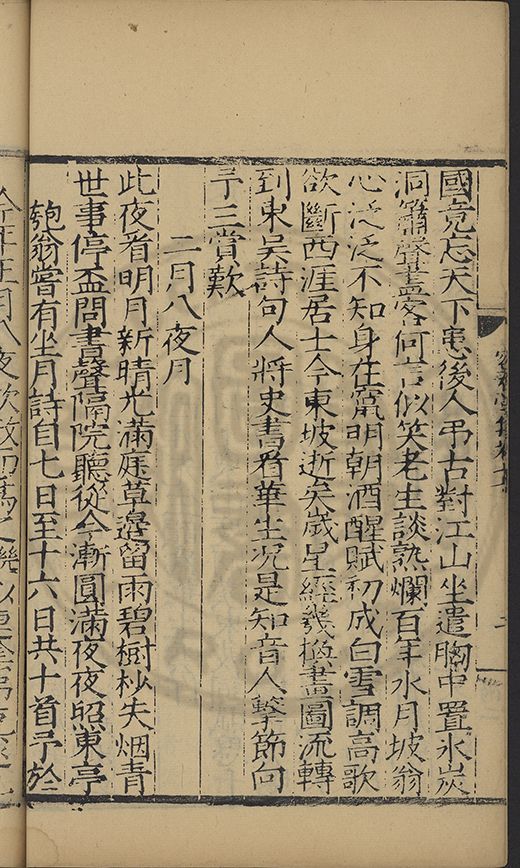 國竟忘天下患後人弔古對江山坐遣胸中置氷炭
洞簫聲盡客何言似笑老生談熟爛百年水月坡翁
心泛泛不知身在𩃬明朝酒醒賦初成白雪調高歌
欲斷西涯居士今東坡逝矣歲星經幾極畫圖流轉
到東吴詩句人將史書看華生况是知音人擊節向
予三賞歎
二月八夜月
此夜看明月新晴光滿庭草邊留雨碧樹杪失烟青
世事停盃問書聲隔院聽從今漸圓滿夜夜照東亭
匏翁嘗有坐月詩自七日至十六日共十首予於